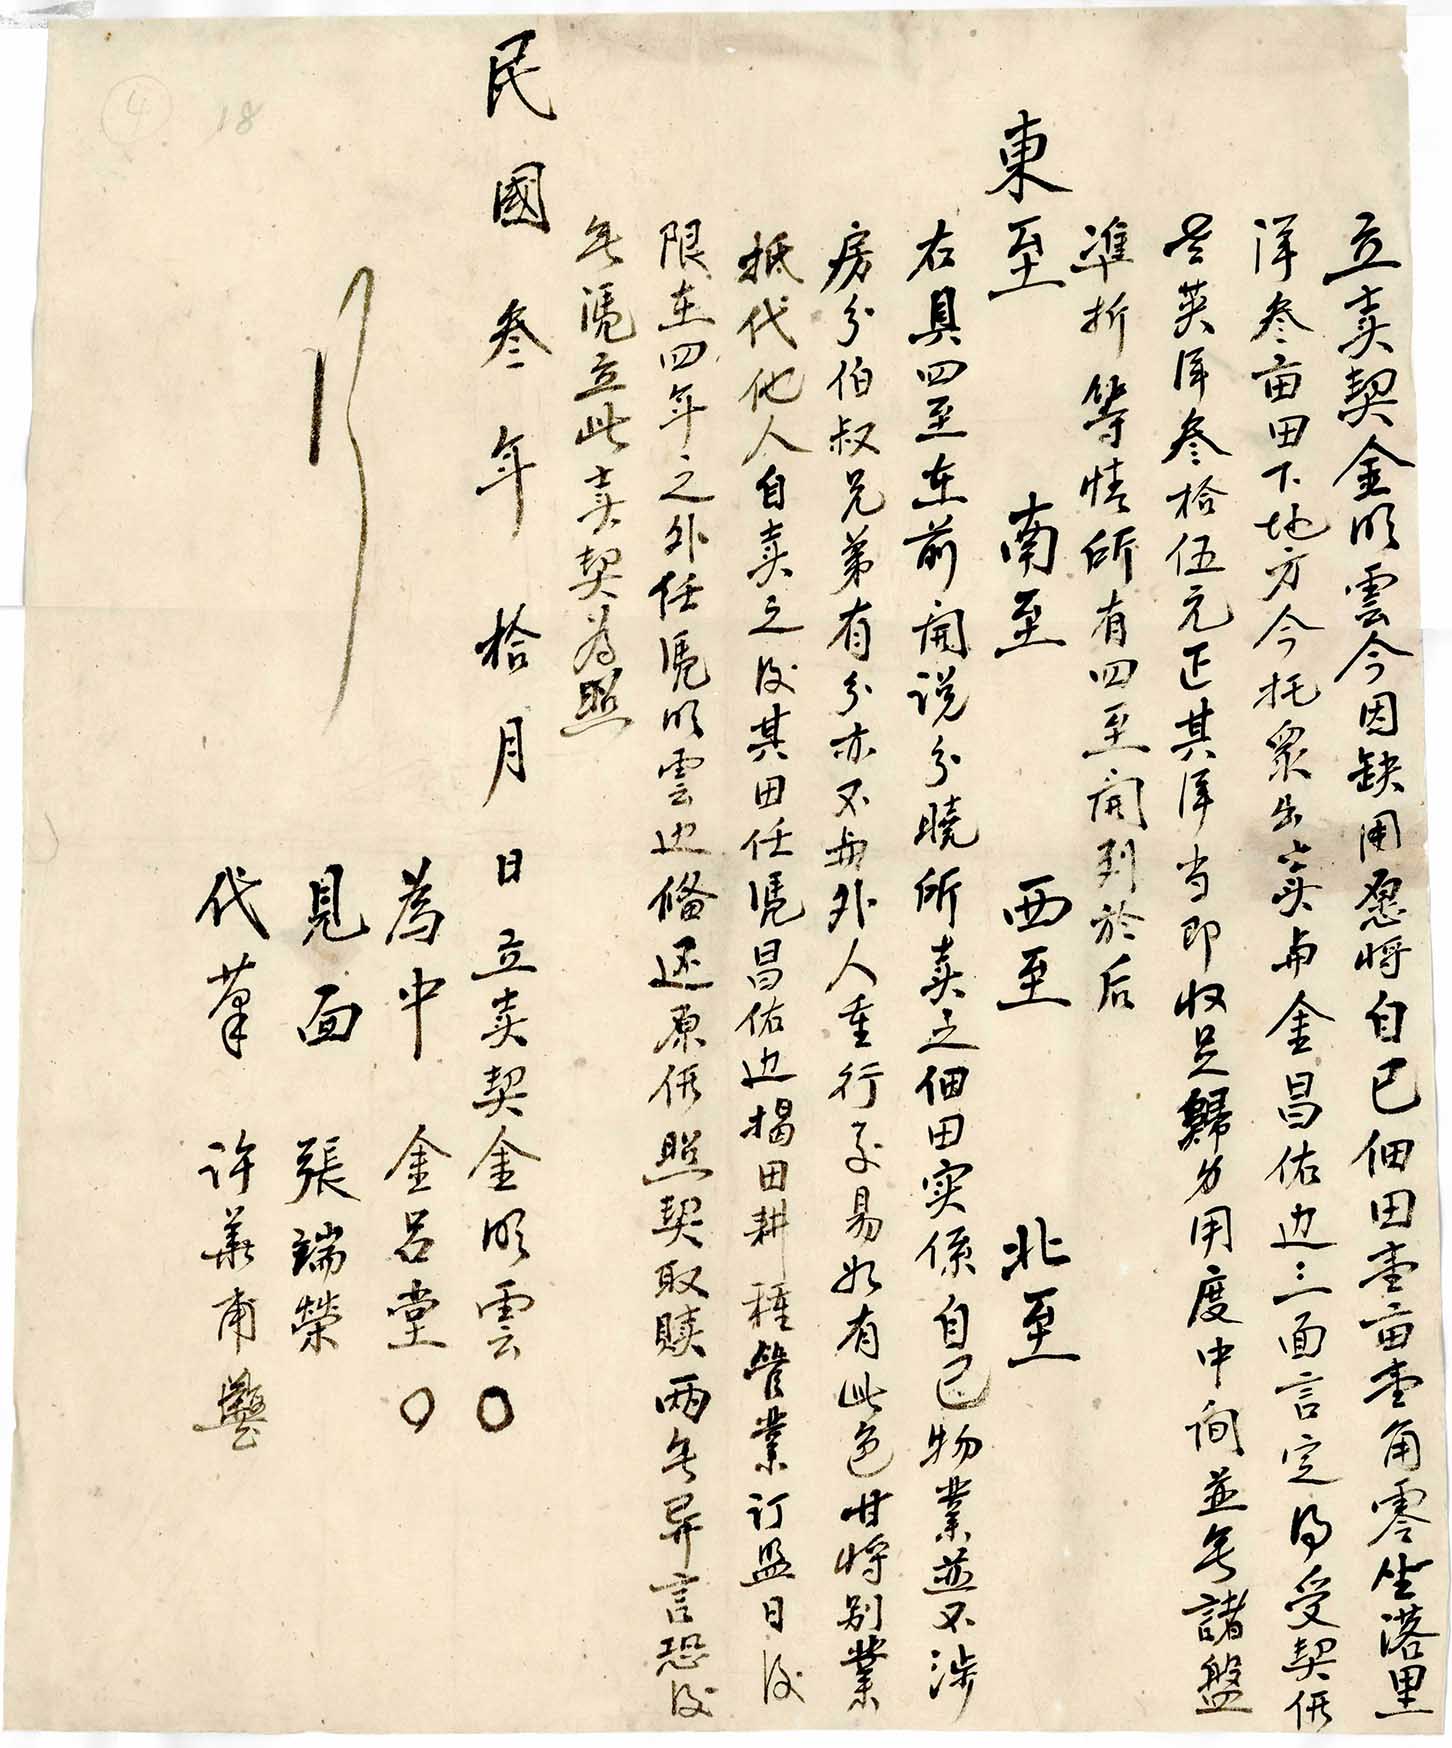 立卖契金明雲今因缺用愿将自己佃田壹亩壹角零坐落里
洋叁亩田下地方今托眾出卖与金昌佑边三面言定得受契価
英洋叁拾伍元正其洋当即收足歸身用度中间並无諸盤
準折等情所有四至開列於后
東至 南至 西至 北至
右具四至在前開说分曉所卖之佃田实係自己物業並不涉
房分伯叔兄弟有分亦不与外人重行交易如有此色甘将别業
抵代他人自卖之後其田任憑昌佑边掲田耕種管業订盈日後
限在四年之外任憑明雲边備还原価照契取贖両无异言恐後
无憑立此卖契為照
民國叁年拾月日立卖契金明雲〇
為中 金呂堂〇
見面 張瑞榮
代筆 许華甫
4 18